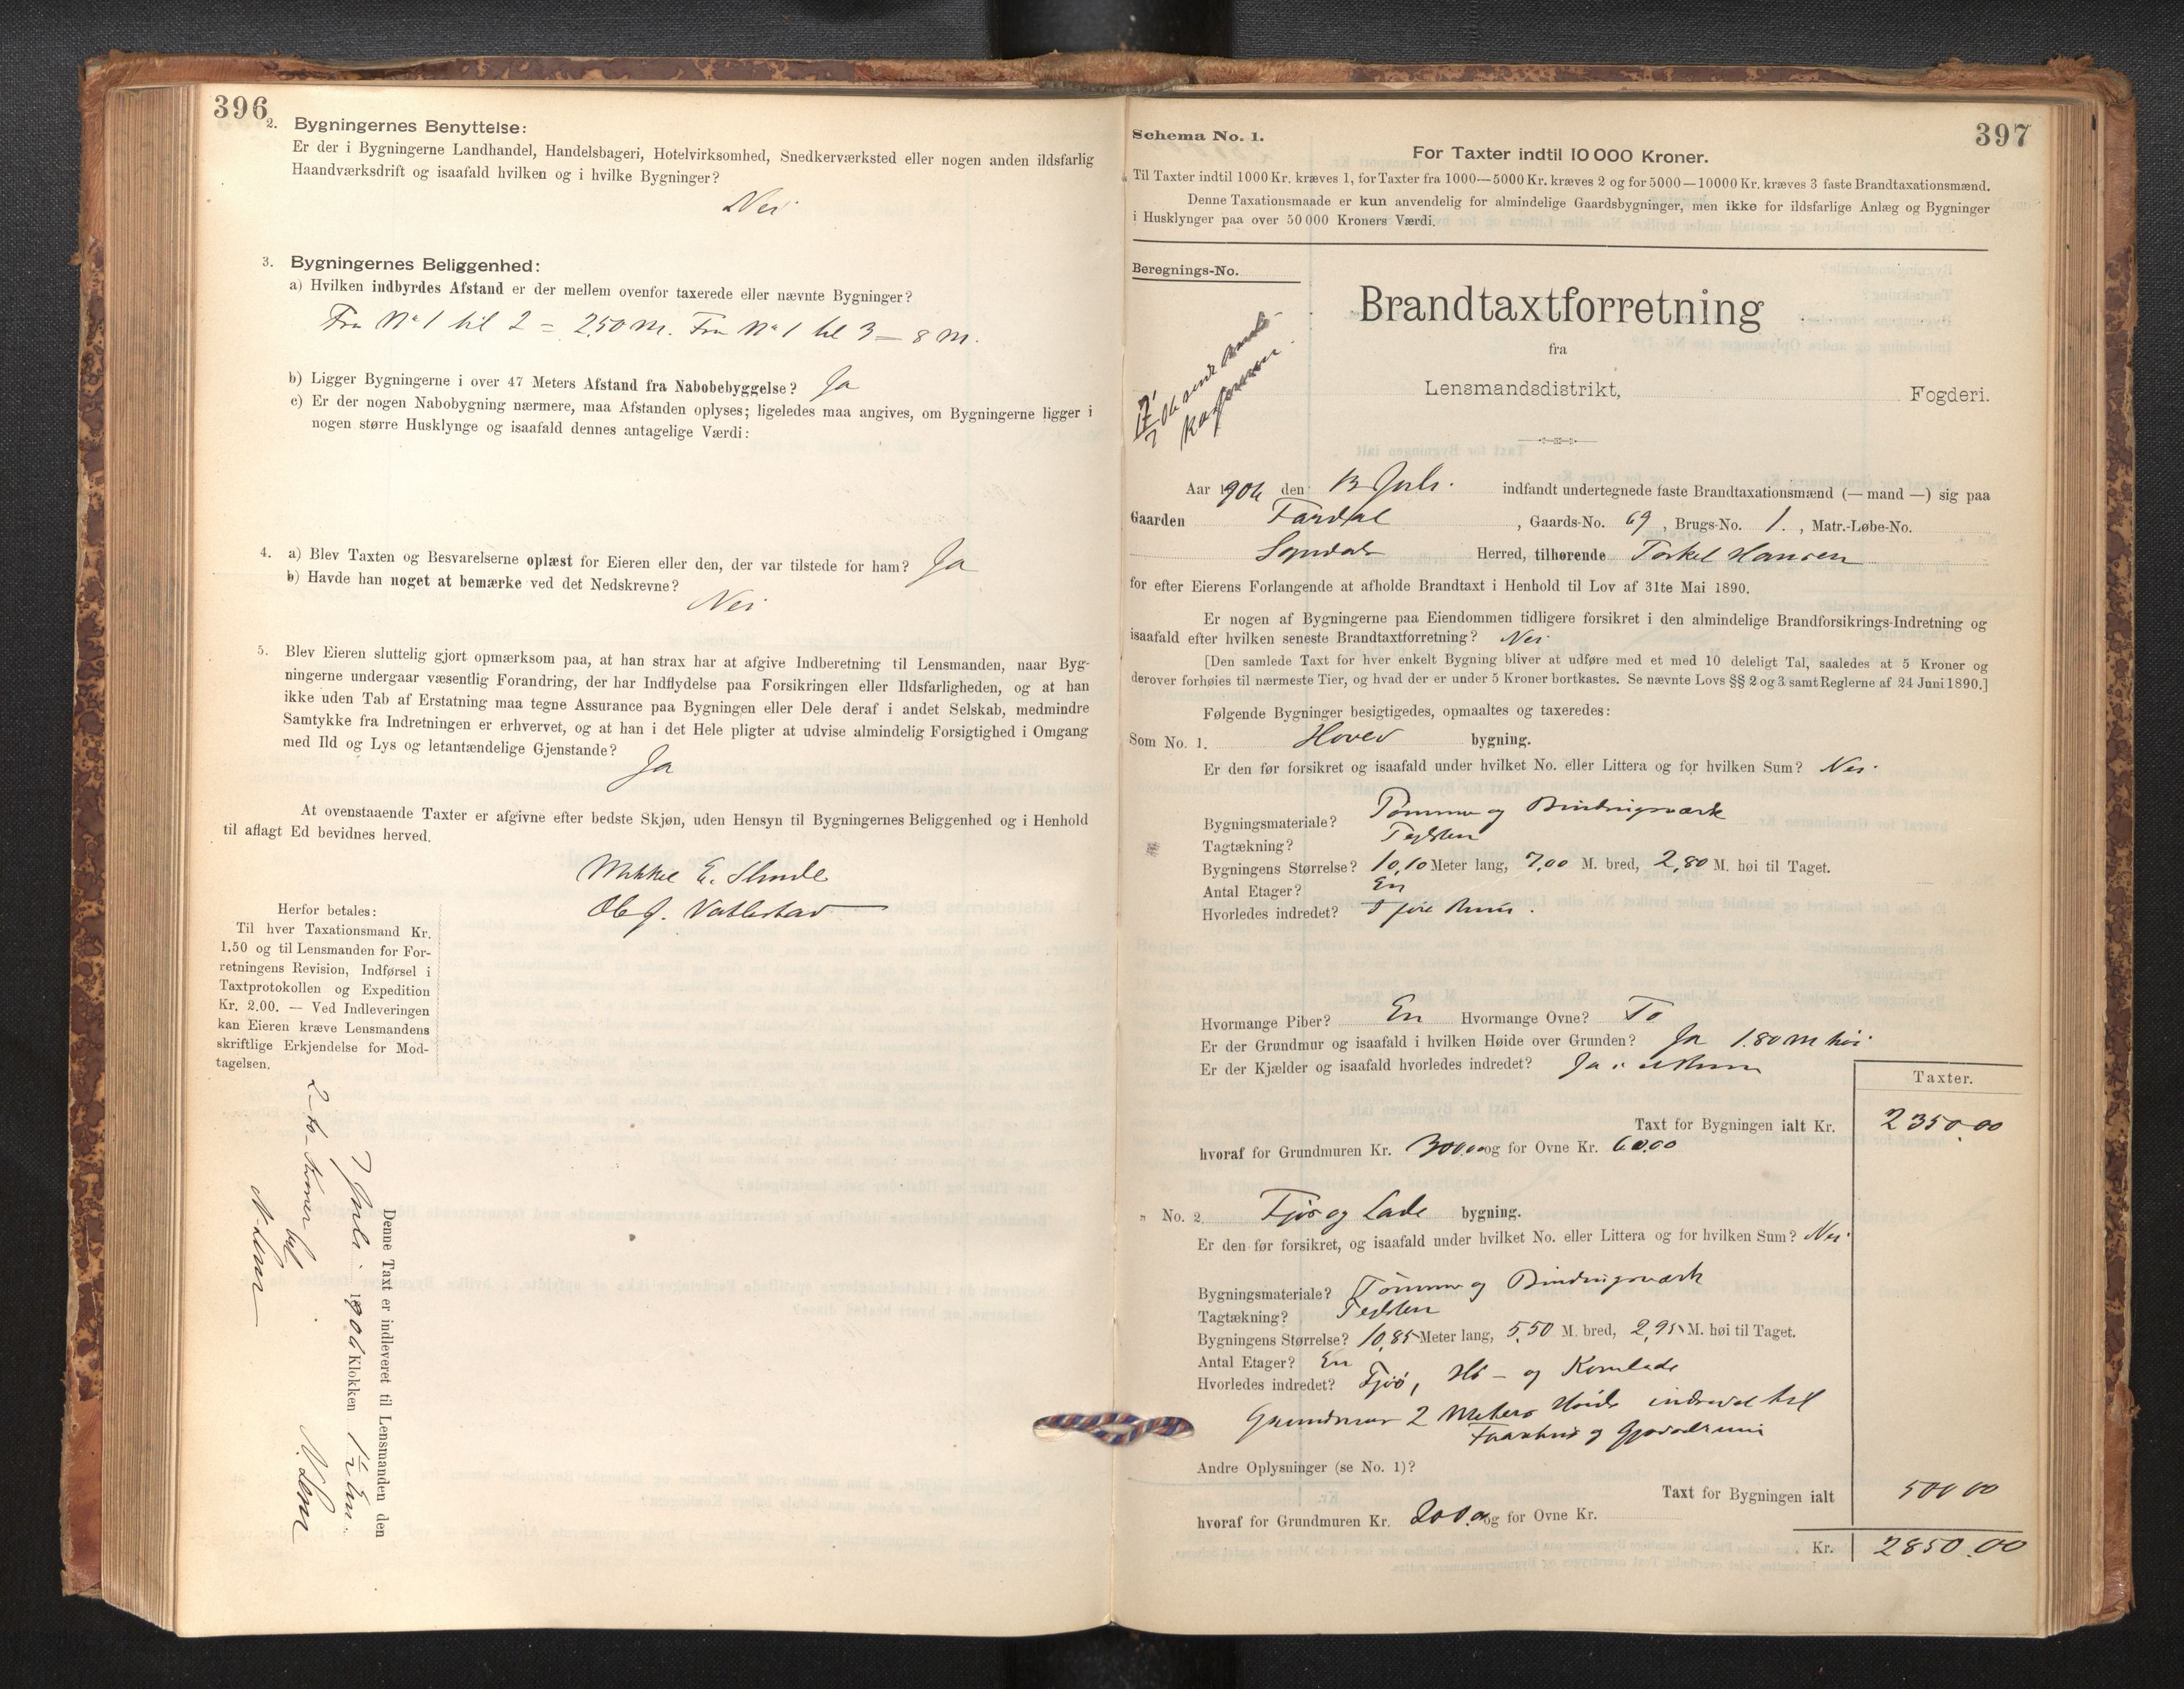 396
2. Bygningernes Benyttelse:
Er der i Bygningerne Landhandel, Handelsbageri, Hotelvirksomhed, Snedkerværksted eller nogen anden ildsfarlig
Haandværksdrift og isaafald hvilken og i hvilke Bygninger?
Nei
3. Bygningernes Beliggenhed:
a) Hvilken indbyrdes Afstand er der mellem ovenfor taxerede eller nævnte Bygninger?
Fra No 1 til 2 = 250 M. Fra No 1 til 3 = 8 M.
b) Ligger Bygningerne i over 47 Meters Afstand fra Nabobebyggelse? Ja
c) Er der nogen Nabobygning nærmere, maa Afstanden oplyses; ligeledes maa angives, om Bygningerne ligger i
nogen større Husklynge og isaafald dennes antagelige Værdi:
4. a) Blev Taxten og Besvarelserne oplæst for Eieren eller den, der var tilstede for ham? Ja
b) Havde han noget at bemærke ved det Nedskrevne?
Nei
5. Blev Eieren sluttelig gjort opmærksom paa, at han strax har at afgive Indberetning til Lensmanden, naar Byg-
ningerne undergaar væsentlig Forandring, der har Indflydelse paa Forsikringen eller Ildsfarligheden, og at han
ikke uden Tab af Erstatning maa tegne Assurance paa Bygningen eller Dele deraf i andet Selskab, medmindre
Samtykke fra Indretningen er erhvervet, og at han i det Hele pligter at udvise almindelig Forsigtighed i Omgang
med Ild og Lys og letantændelige Gjenstande?
Ja
At ovenstaaende Taxter er afgivne efter bedste Skjøn, uden Hensyn til Bygningernes Beliggenhed og i Henhold
til aflagt Ed bevidnes herved.
Mikkel E. Slinde
Ole J. Vatlestad
Herfor betales:
Til hver Taxationsmand Kr.
1.50 og til Lensmanden for For-
retningens Revision, Indførsel i
Taxtprotokollen og Expedition
Kr. 2.00. — Ved Indleveringen
kan Eieren kræve Lensmandens
skriftlige Erkjendelse for Mod-
tagelsen.
Denne Taxt er indleveret til Lensmanden den
7 Juli 1906 Klokken 1 1/2 Em.
N. Lem
2 - to - Kroner bet
N. Lem
397
Schema No. 1.
For Taxter indtil 10 000 Kroner.
Til Taxter indtil 1000 Kr. kræves 1, for Taxter fra 1000—5000 Kr. kræves 2 og for 5000—10000 Kr. kræves 3 faste Brandtaxationsmænd.
Denne Taxationsmaade er kun anvendelig for almindelige Gaardsbygninger, men ikke for ildsfarlige Anlæg og Bygninger
i Husklynger paa over 50 000 Kroners Værdi.
Beregnings-No.
Brandtaxtforretning
fra
Lensmandsdistrikt, Fogderi.
Aar 1906 den 13 Juli indfandt undertegnede faste Brandtaxationsmænd (— mand —) sig paa
Gaarden Fardal , Gaards-No. 69 , Brugs-No. 1. , Matr.-Løbe-No.
Sogndals Herred, tilhørende Torkel Hansen
for efter Eierens Forlangende at afholde Brandtaxt i Henhold til Lov af 31te Mai 1890.
Er nogen af Bygningerne paa Eiendommen tidligere forsikret i den almindelige Brandforsikrings-Indretning og
isaafald efter hvilken seneste Brandtaxtforretning? Nei
[Den samlede Taxt for hver enkelt Bygning bliver at udføre med et med 10 deleligt Tal, saaledes at 5 Kroner og
derover forhøies til nærmeste Tier, og hvad der er under 5 Kroner bortkastes. Se nævnte Lovs §§ 2 og 3 samt Reglerne af 24 Juni 1890.]
Følgende Bygninger besigtigedes, opmaaltes og taxeredes:
Som No. 1. Hoved bygning.
Er den før forsikret og isaafald under hvilket No. eller Littera og for hvilken Sum? Nei
Bygningsmateriale? Tømmer og Bindingsværk
Tagtækning? Teglsten
Bygningens Størrelse? 10,10 Meter lang, 7,00 M. bred, 2,80 M. høi til Taget.
Antal Etager? En
Hvorledes indredet? I fire Rum.
Hvormange Piber? En Hvormange Ovne? To
Er der Grundmur og isaafald i hvilken Høide over Grunden? Ja 1.80 M høi
Er der Kjælder og isaafald hvorledes indredet? Ja i et Rum
Taxter.
Taxt for Bygningen ialt Kr. 2350.00
hvoraf for Grundmuren Kr. 300.00 og for Ovne Kr. 60.00
" No. 2 Fjøs og Lade bygning.
Er den før forsikret, og isaafald under hvilket No. eller Littera og for hvilken Sum? Nei
Bygningsmateriale? Tømmer og Bindingsværk
Tagtækning? Teglsten
Bygningens Størrelse? 10,85 Meter lang, 5,50 M. bred, 2,95 M. høi til Taget.
Antal Etager? En
Hvorledes indredet? Fjøs, Hø - og Kornlade
Grundmur 2 Meters Høide indredet til
Faarehus og Gjødselrum
Andre Oplysninger (se No. 1)?
Taxt for Bygningen ialt 500 00
hvoraf for Grundmuren Kr. 200.00 og for Ovne Kr.
Kr. 2850.00